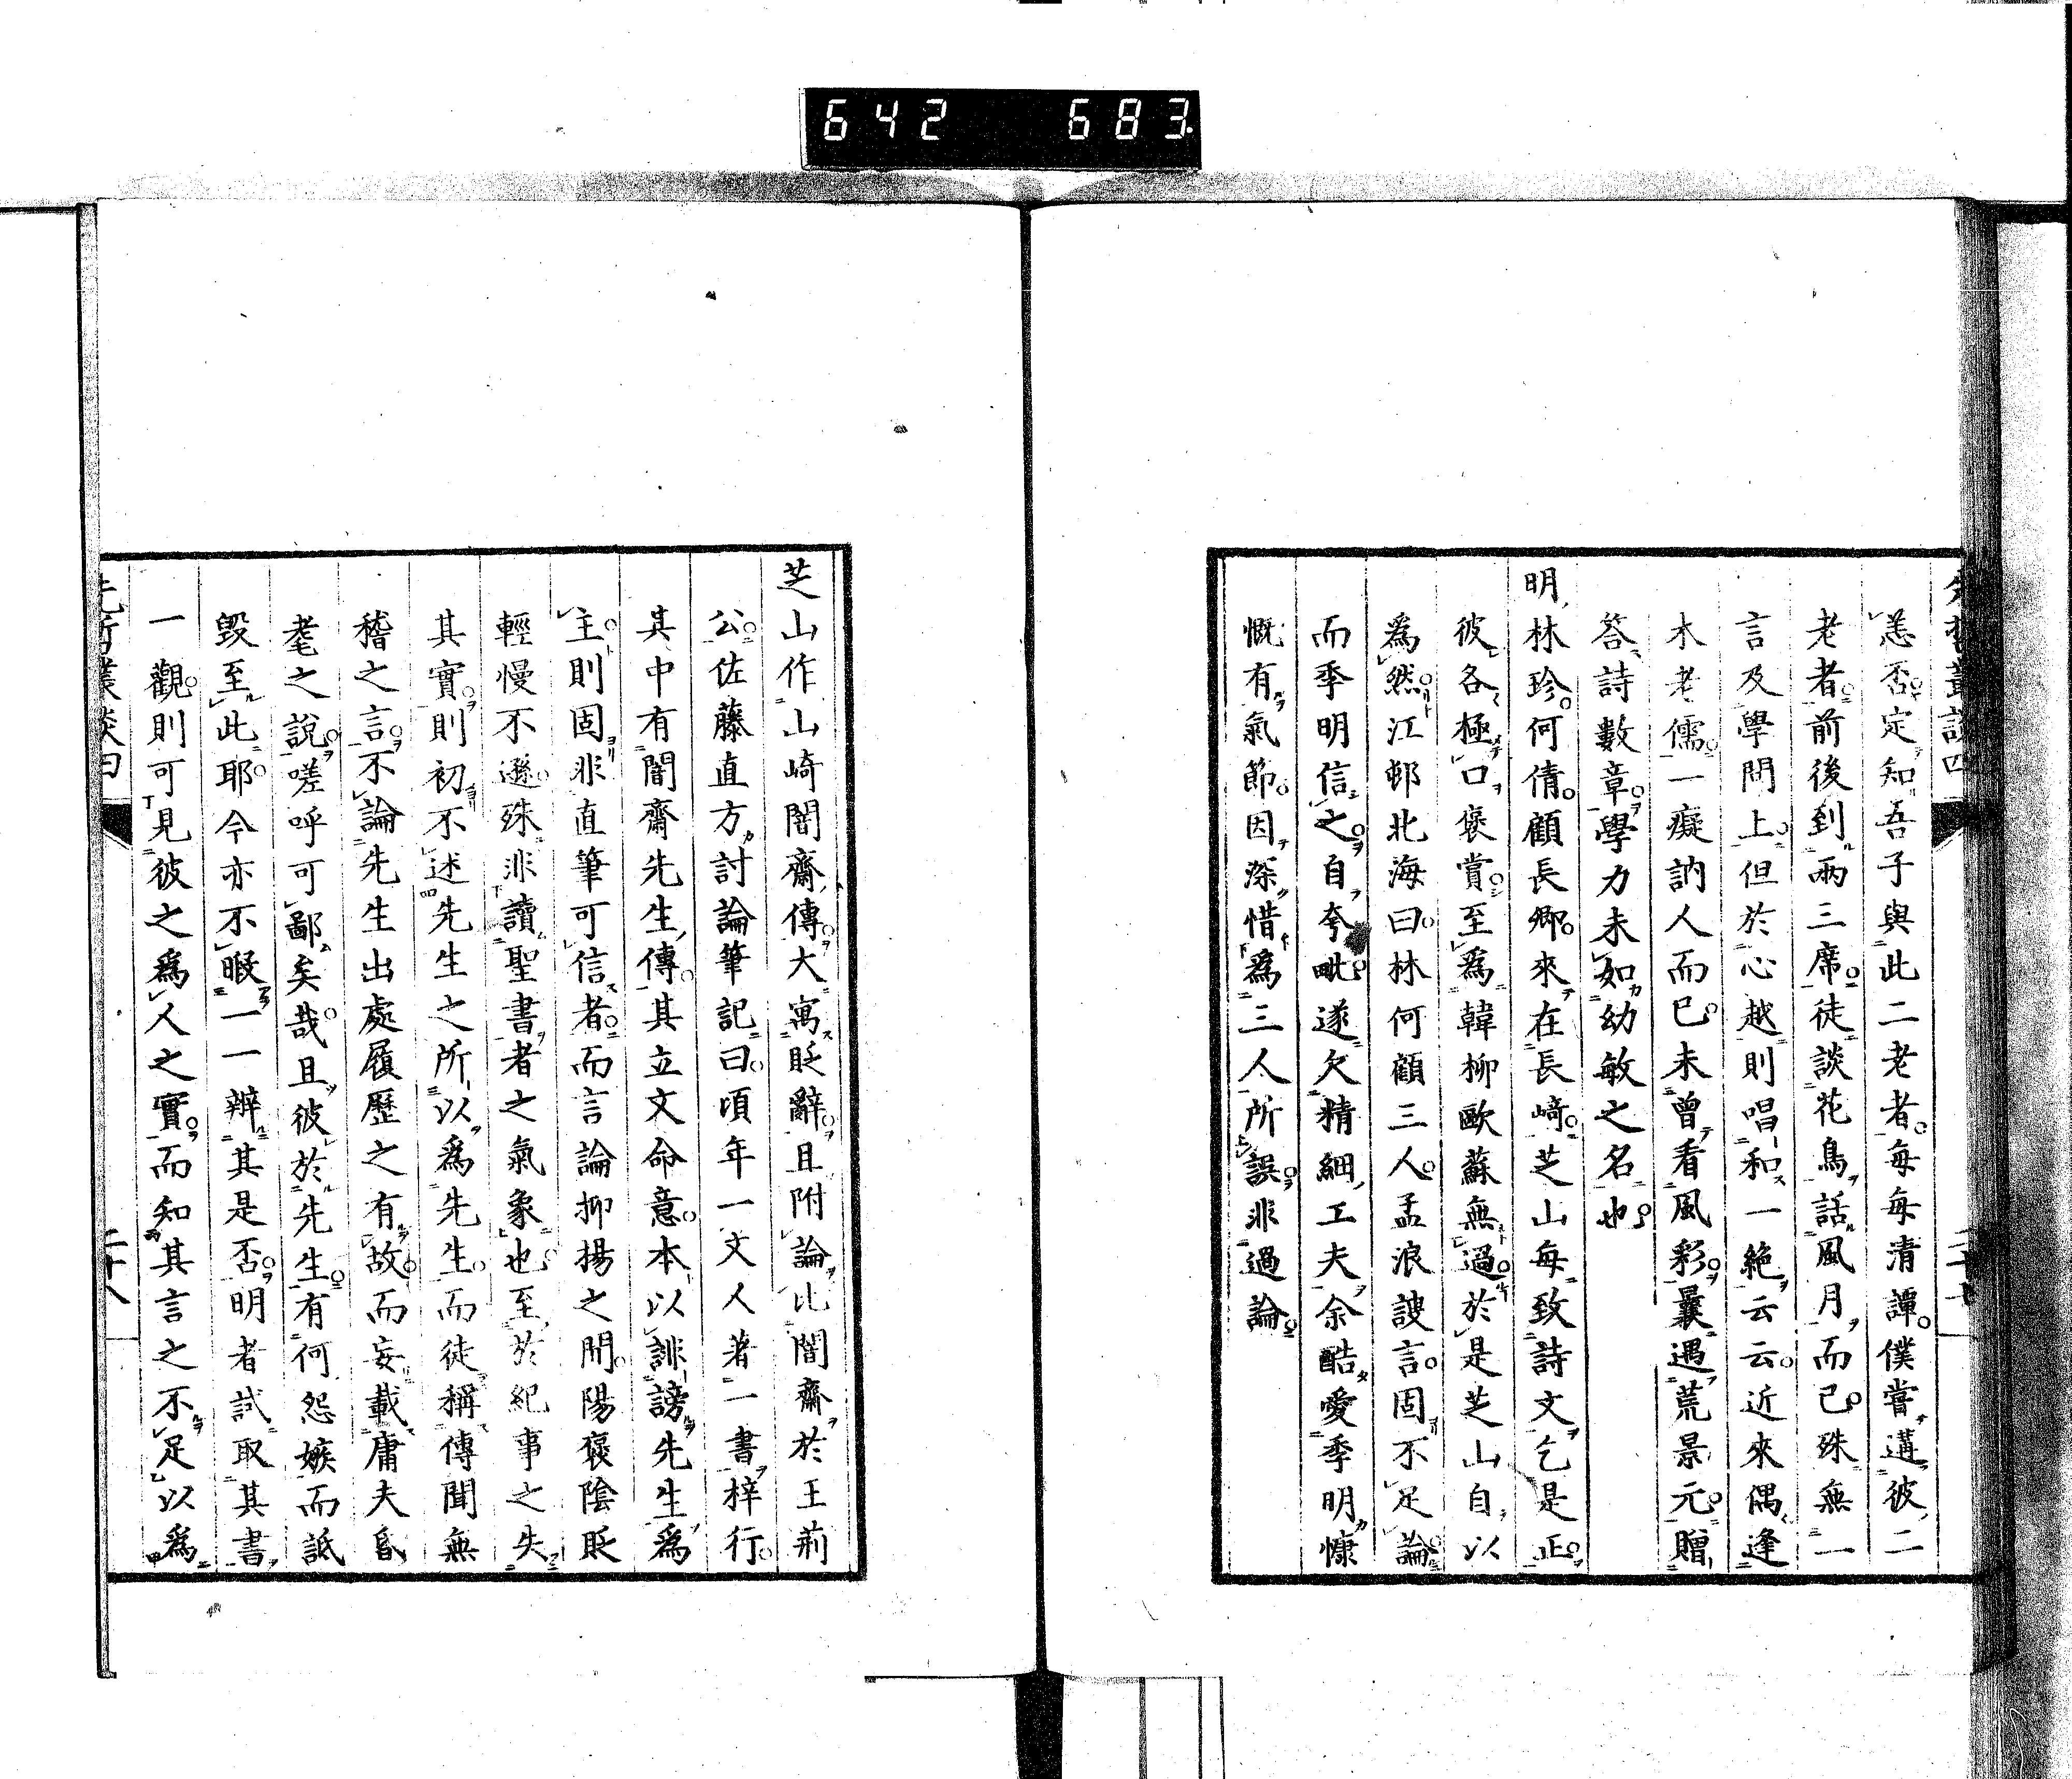 642 683
先哲叢談四
恙否定知吾子與此二老者每每清譚僕嘗遘彼二
老者前後到兩三席徒談花鳥話風月而已殊無一
言及學問上但於心越則唱和一絶云云近來偶逢
木老儒一癡訥人而已未曾看風彩曩遇荒景元贈
答詩數章學力未如幼敏之名也
明林珍何倩顧長卿來在長﨑芝山每致詩文乞是正
彼各極口褒賞至爲韓柳歐蘇無過於是芝山自以
爲然江邨北海曰林何顧三人孟浪謏言固不足論
而季明信之自夸毗遂欠精細工夫余酷愛季明慷
慨有氣節因深惜爲三人所誤非過論
芝山作山崎闇齋傳大寓貶辭且附論比闇齋於王荊
公佐藤直方討論筆記曰頃年一文人著一書梓行
其中有闇齋先生傳其立文命意本以誹謗先生爲
主則固非直筆可信者而言論抑揚之間陽褒陰貶
輕慢不遜殊非讀聖書者之氣象也至於紀事之失
其實則初不述先生之所以爲先生而徒稱傳聞無
稽之言不論先生出處履歷之有故而妄載庸夫
耄之說嗟呼可鄙矣哉且彼於先生有何怨嫉而詆
毀至此耶今亦不暇一一辨其是否明者試取其書
一觀則可見彼之爲人之實而知其言之不足以爲
先哲叢談四 二十八